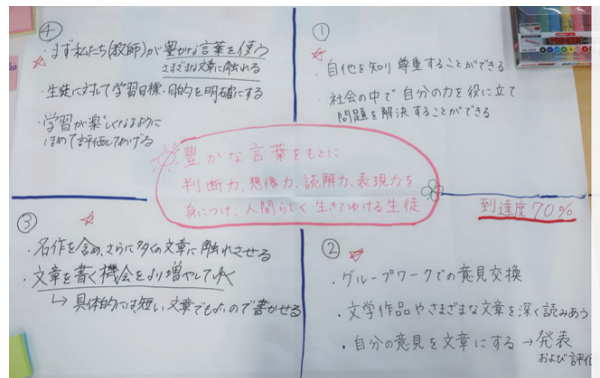 ④
・まず私たち(教師)が豊かな言葉を使う
さまざまな文章に触れる
・生徒に対して学習目標・目的を明確にする
・学習が楽しくなるように
ほめて評価してあげる
①
・自他を知り尊重することができる
・社会の中で自分の力を役に立て
問題を解決することができる
豊かな言葉をもとに
判断力、想像力、読解力、表現力を
身につけ、人間らしく生きてゆける生徒
到達度70%
③
・名作を含め、さらに多くの文章に触れさせる
・文章を書く機会をより増やしていく
↳具体的には短い文章でもよいので書かせる
②
・グループワークでの意見交換
・文学作品やさまざまな文章を深く読みあう
・自分の意見を文章にする→発表
および評価